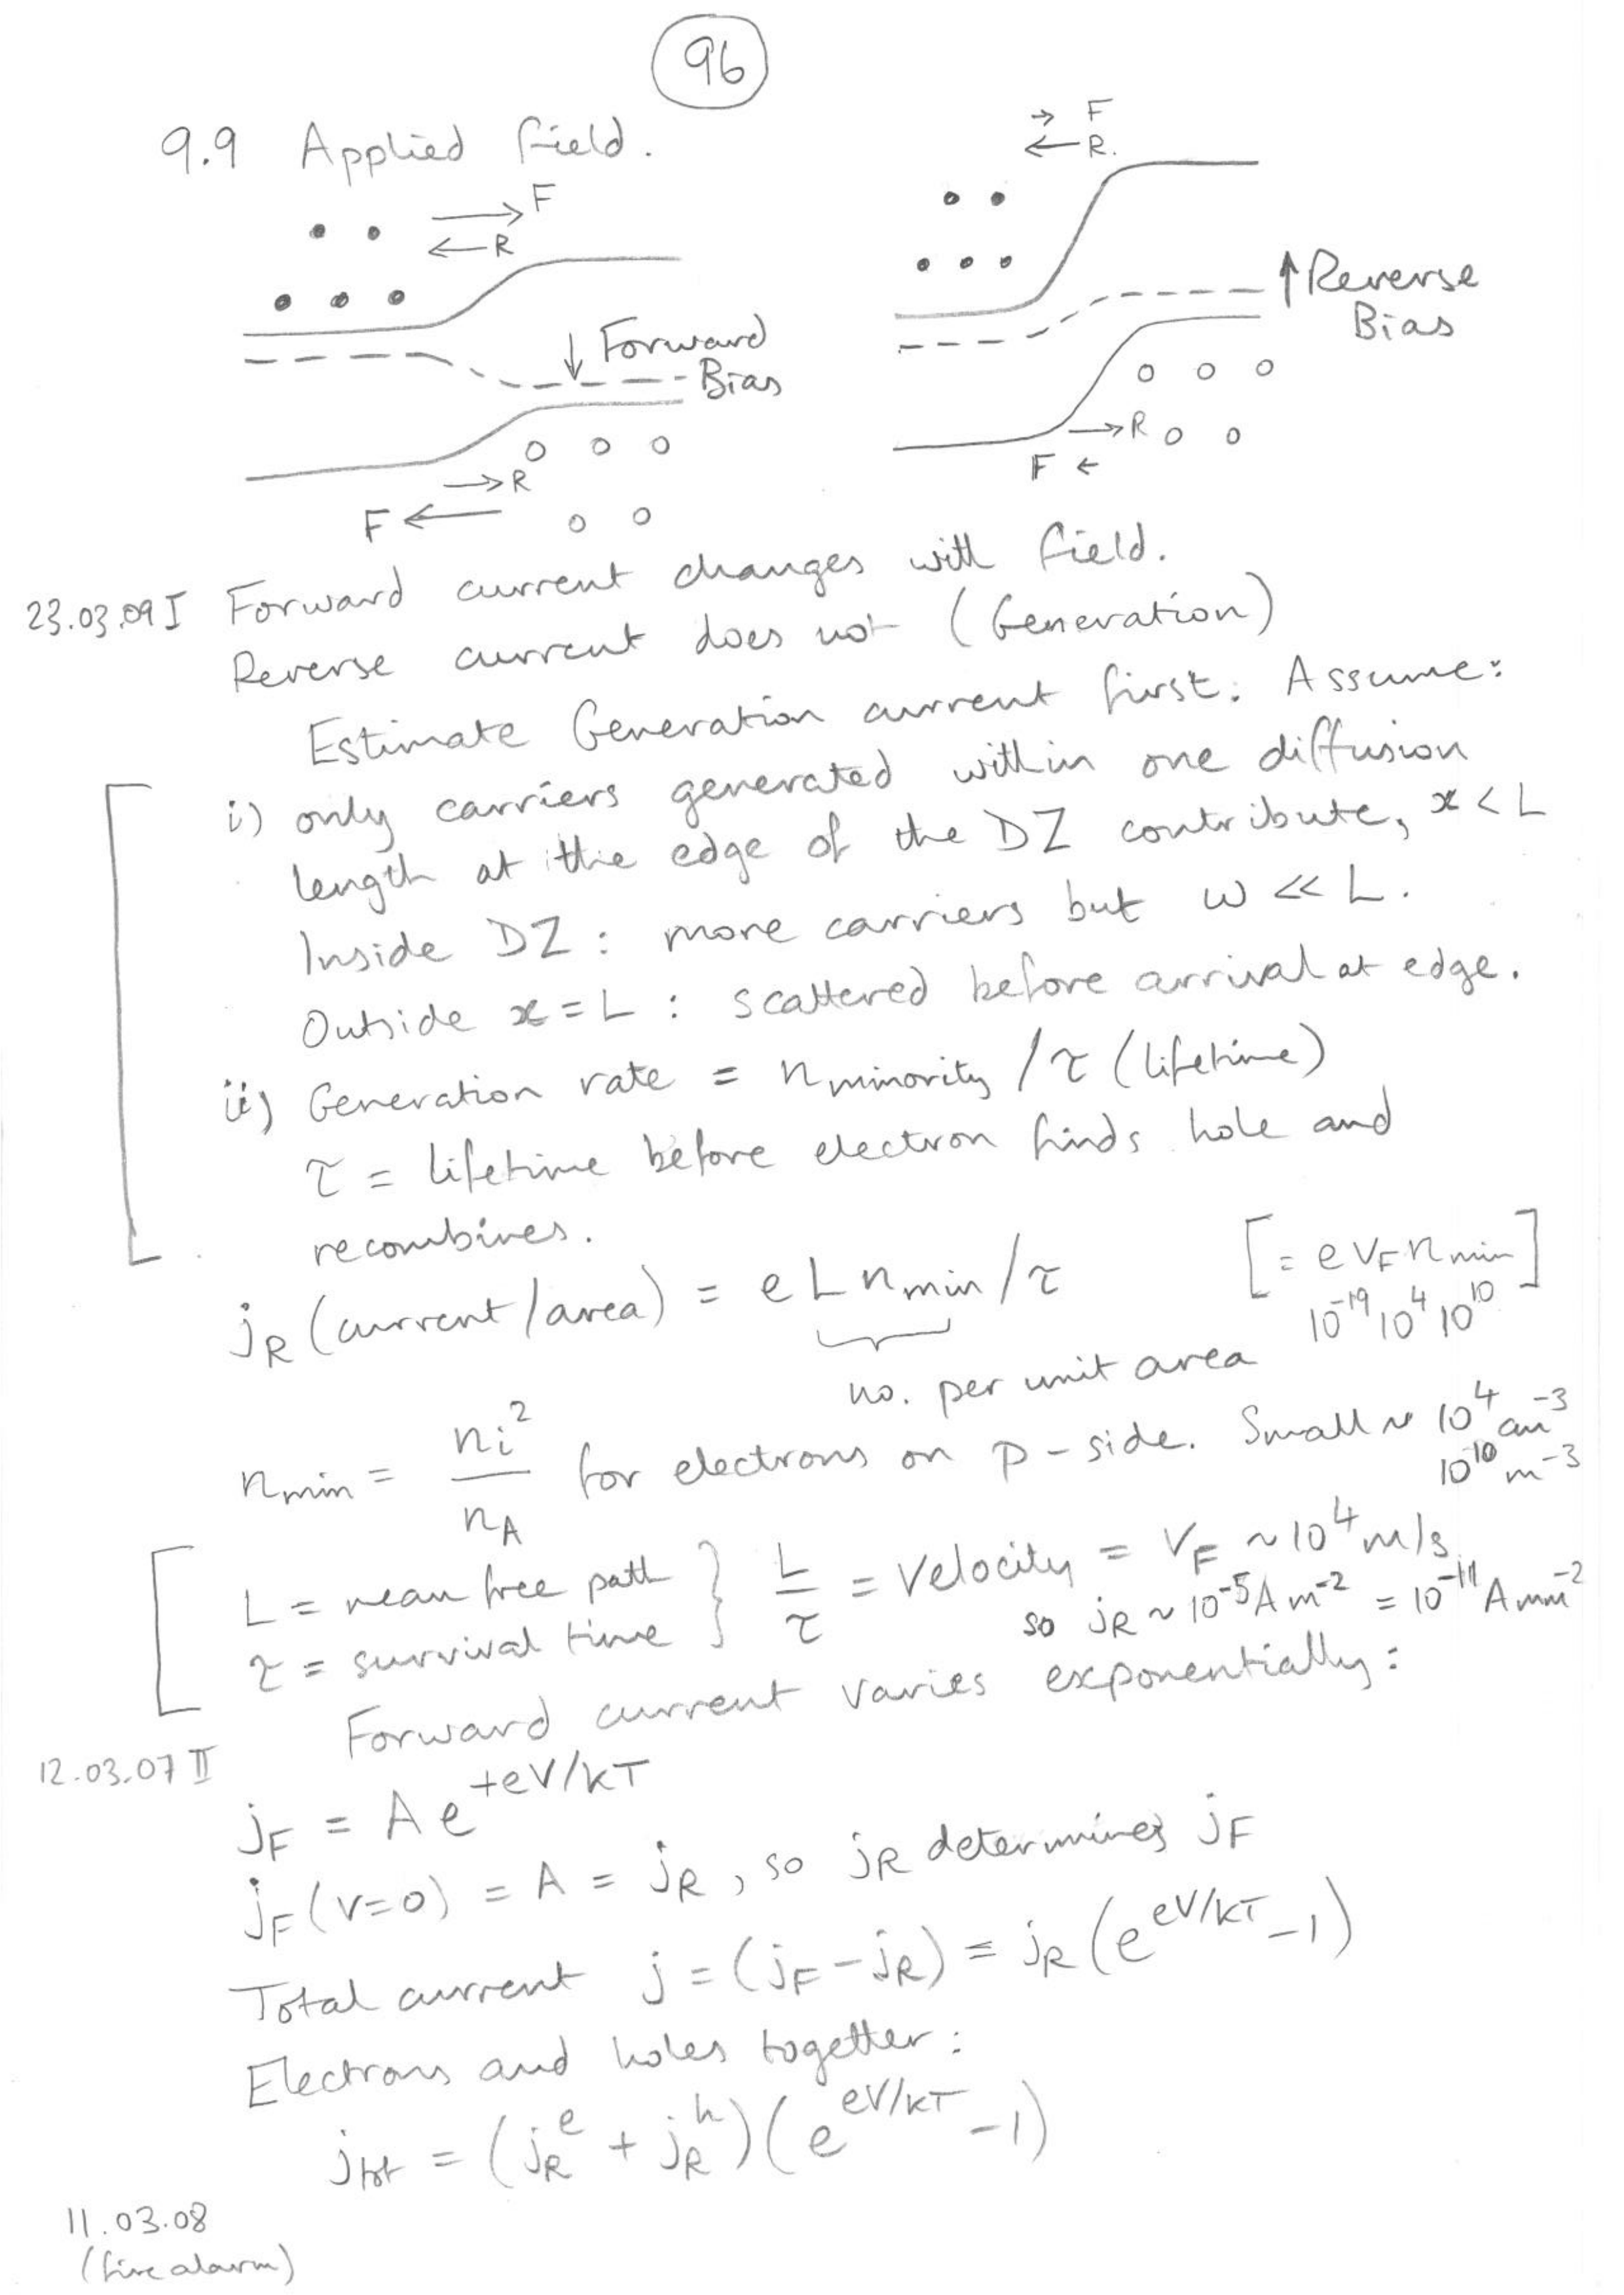 96
9.9 Applied field.
F
R
Forward
Bias
R
F
F
R.
Reverse
Bias
R
F
23.03.09 I Forward current changes with field.
Reverse current does not (Generation)
Estimate Generation current first. Assume:
i) only carriers generated within one diffusion
length at the edge of the DZ contribute, x < L
Inside DZ : more carriers but w << L.
Outside x = L : scattered before arrival at edge.
ii) Generation rate = n_minority / τ (lifetime)
τ = lifetime before electron finds hole and
recombines.
j_R (current/area) = e L n_min / τ [= e v_F n_min]
10^-19 10^4 10^10
no. per unit area
n_min = n_i^2 / n_A for electrons on p-side. Small ~ 10^4 cm^-3
10^10 m^-3
L = mean free path } L/τ = velocity = v_F ~ 10^4 m/s
τ = survival time so j_R ~ 10^-5 A m^-2 = 10^-11 A mm^-2
Forward current varies exponentially:
12.03.07 II
j_F = A e^{+eV/kT}
j_F (V=0) = A = j_R, so j_R determines j_F
Total current j = (j_F - j_R) = j_R (e^{eV/kT} - 1)
Electrons and holes together:
j_tot = (j_R^e + j_R^h)(e^{eV/kT} - 1)
11.03.08
(fire alarm)